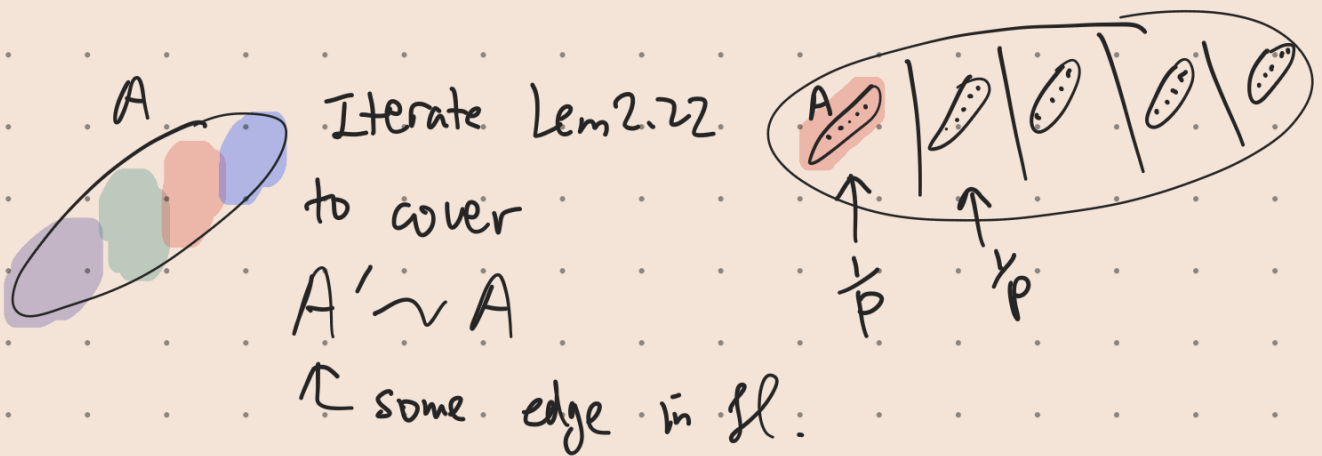 A
Iterate Lem 2.22
to cover
A' ~ A
↑ some edge in H.
A
1/p 1/p